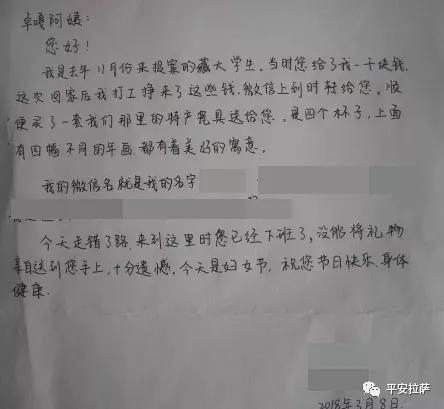 卓嘎阿姨：
您好！
我是去年11月份来报案的藏大学生，当时您给了我一千块钱，
这次回家后我打工挣来了这些钱，微信上到时转给您。顺
便买了一套我们那里的特产瓷具送给您。是四个杯子，上面
有四幅不同的年画，都有着美好的寓意。
我的微信名就是我的名字
今天走错了路，来到这里时您已经下班了，没能将礼物
亲自送到您手上，十分遗憾。今天是妇女节，祝您节日快乐，身体
健康。
2018年3月8日
平安拉萨